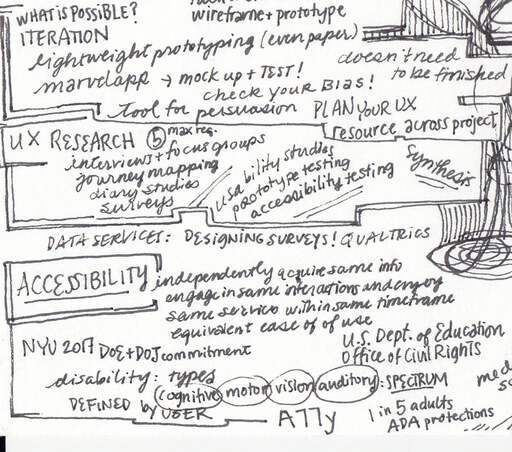 WHAT IS POSSIBLE?
wireframe + prototype
ITERATION
lightweight prototyping (even paper)
doesn't need
to be finished
marvelapp → mock up + TEST!
check your BIAS!
tool for persuasion PLAN YOUR UX
resource across project
UX RESEARCH 5 max req.
interviews + focus groups
journey mapping
diary studies
surveys
usability studies
prototype testing
accessibility testing
synthesis
DATA SERVICES: DESIGNING SURVEYS! QUALTRICS
ACCESSIBILITY independently acquire same info
engage in same interactions and enjoy
same services within same timeframe
equivalent ease of of use
NYU 2017 DOE + DOJ commitment
U.S. Dept. of Education
Office of Civil Rights
disability: types
cognitive motor vision auditory : SPECTRUM
DEFINED by USER
A11y
1 in 5 adults
ADA protections